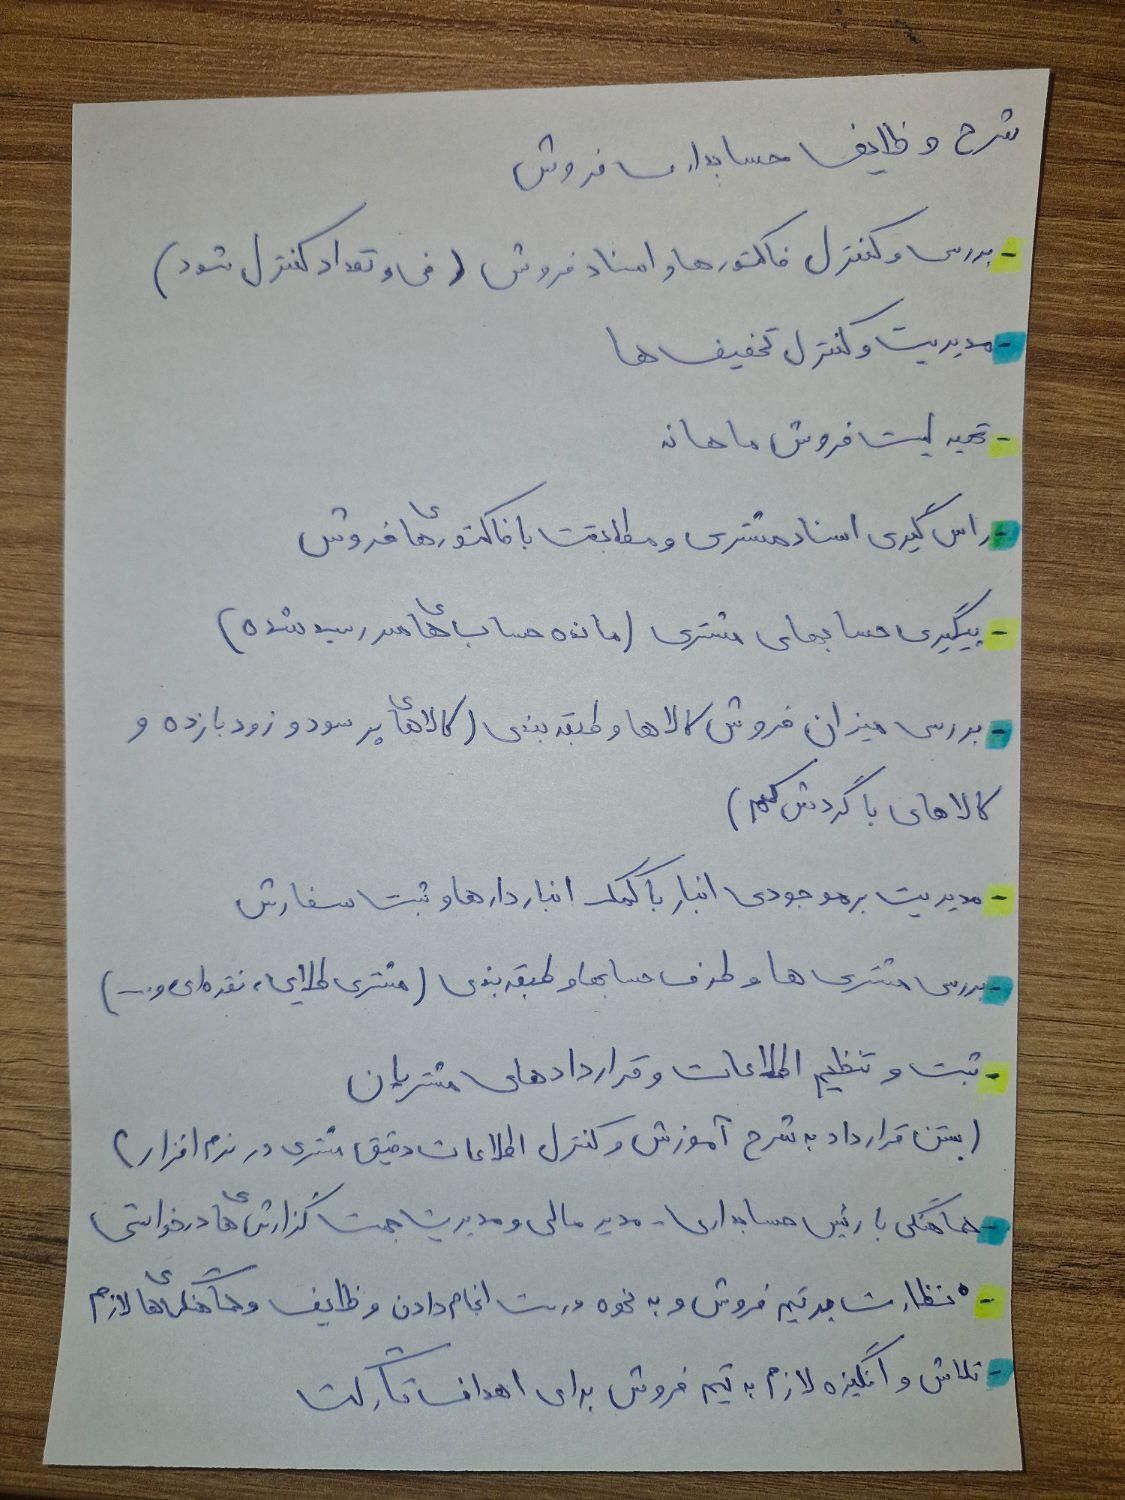 شرح وظایف حسابداری فروش
- بررسی و کنترل فاکتورها و اسناد فروش (فی و تعداد کنترل شود)
- مدیریت و کنترل تخفیف ها
- تهیه لیست فروش ماهانه
- راس گیری اسناد مشتری و مطابقت با فاکتورهای فروش
- پیگیری حسابهای مشتری (مانده حساب های سررسید شده)
- بررسی میزان فروش کالاها و طبقه بندی (کالاهای پر سود و زود بازده و
کالاهای با گردش کمتر)
- مدیریت بر موجودی انبار با کمک انباردارها و ثبت سفارش
- بررسی مشتری ها و طرف حسابها و طبقه بندی (مشتری طلایی، نقره ای و ...)
- ثبت و تنظیم اطلاعات و قراردادهای مشتریان
(بستن قرارداد به شرح آموزش و کنترل اطلاعات دقیق مشتری در نرم افزار)
- هماهنگی با رئیس حسابداری - مدیر مالی و مدیریت جهت گزارش های درخواستی
- نظارت بر تیم فروش و به نحوه درست انجام دادن وظایف و هماهنگی های لازم
- تلاش و انگیزه لازم به تیم فروش برای اهداف تارگت